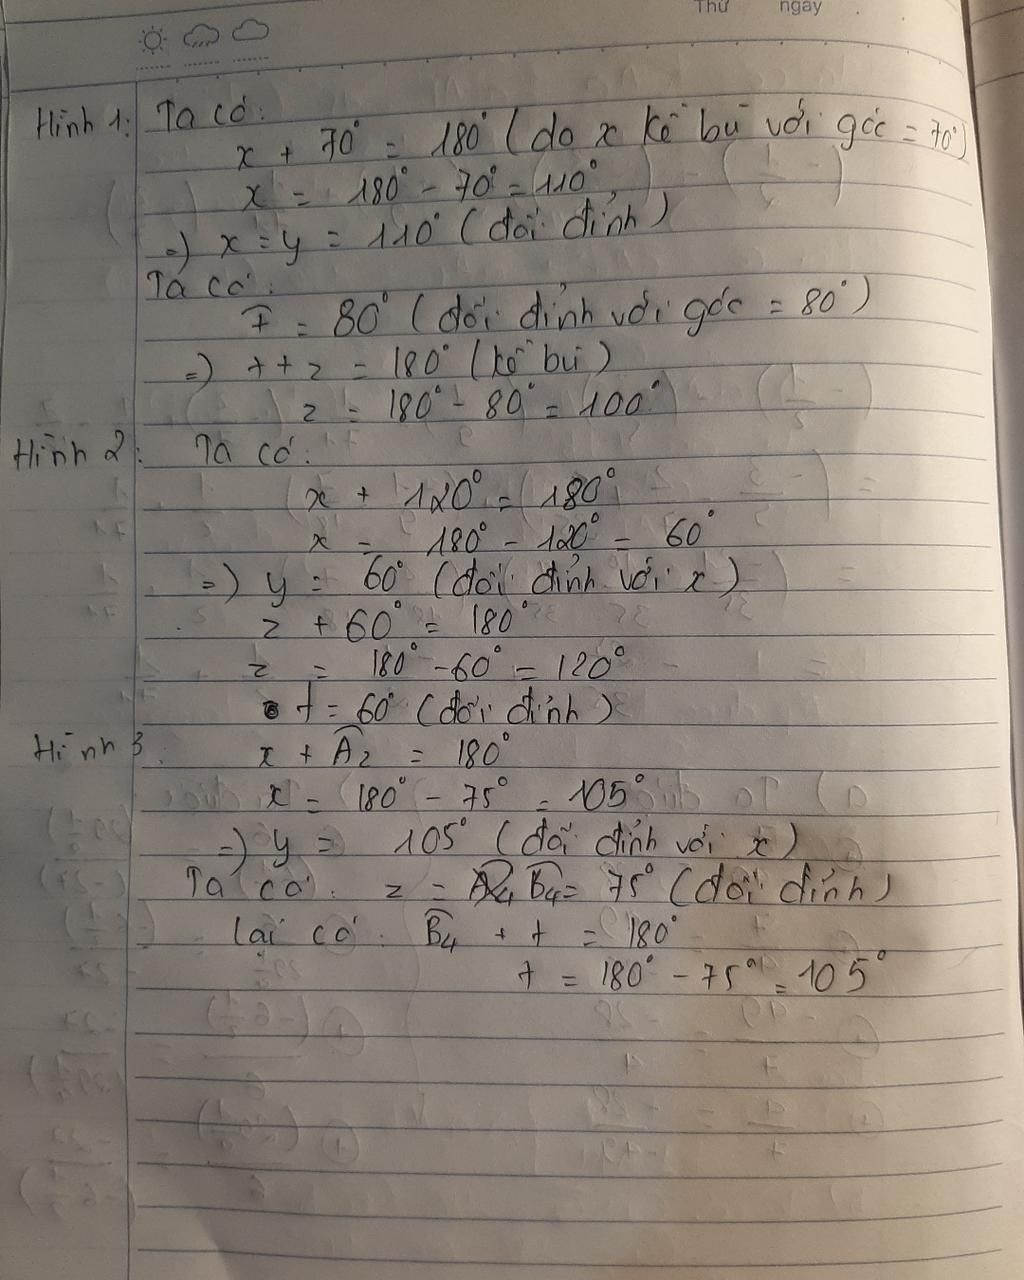 Thứ ngày
Hình 1: Ta có:
x + 70° = 180° (do x kề bù với góc = 70°)
x = 180° - 70° = 110°
=) x = y = 110° (đối đỉnh)
Ta có:
t = 80° (đối đỉnh với góc = 80°)
=) t + z = 180° (kề bù)
z = 180° - 80° = 100°
Hình 2: Ta có:
x + 120° = 180°
x = 180° - 120° = 60°
=) y = 60° (đối đỉnh với x)
z + 60° = 180°
z = 180° - 60° = 120°
t = 60° (đối đỉnh)
Hình 3 x + A2 = 180°
x = 180° - 75° = 105°
=) y = 105° (đối đỉnh với x)
Ta có: z = B4 = 75° (đối đỉnh)
lại có: B4 + t = 180°
t = 180° - 75° = 105°